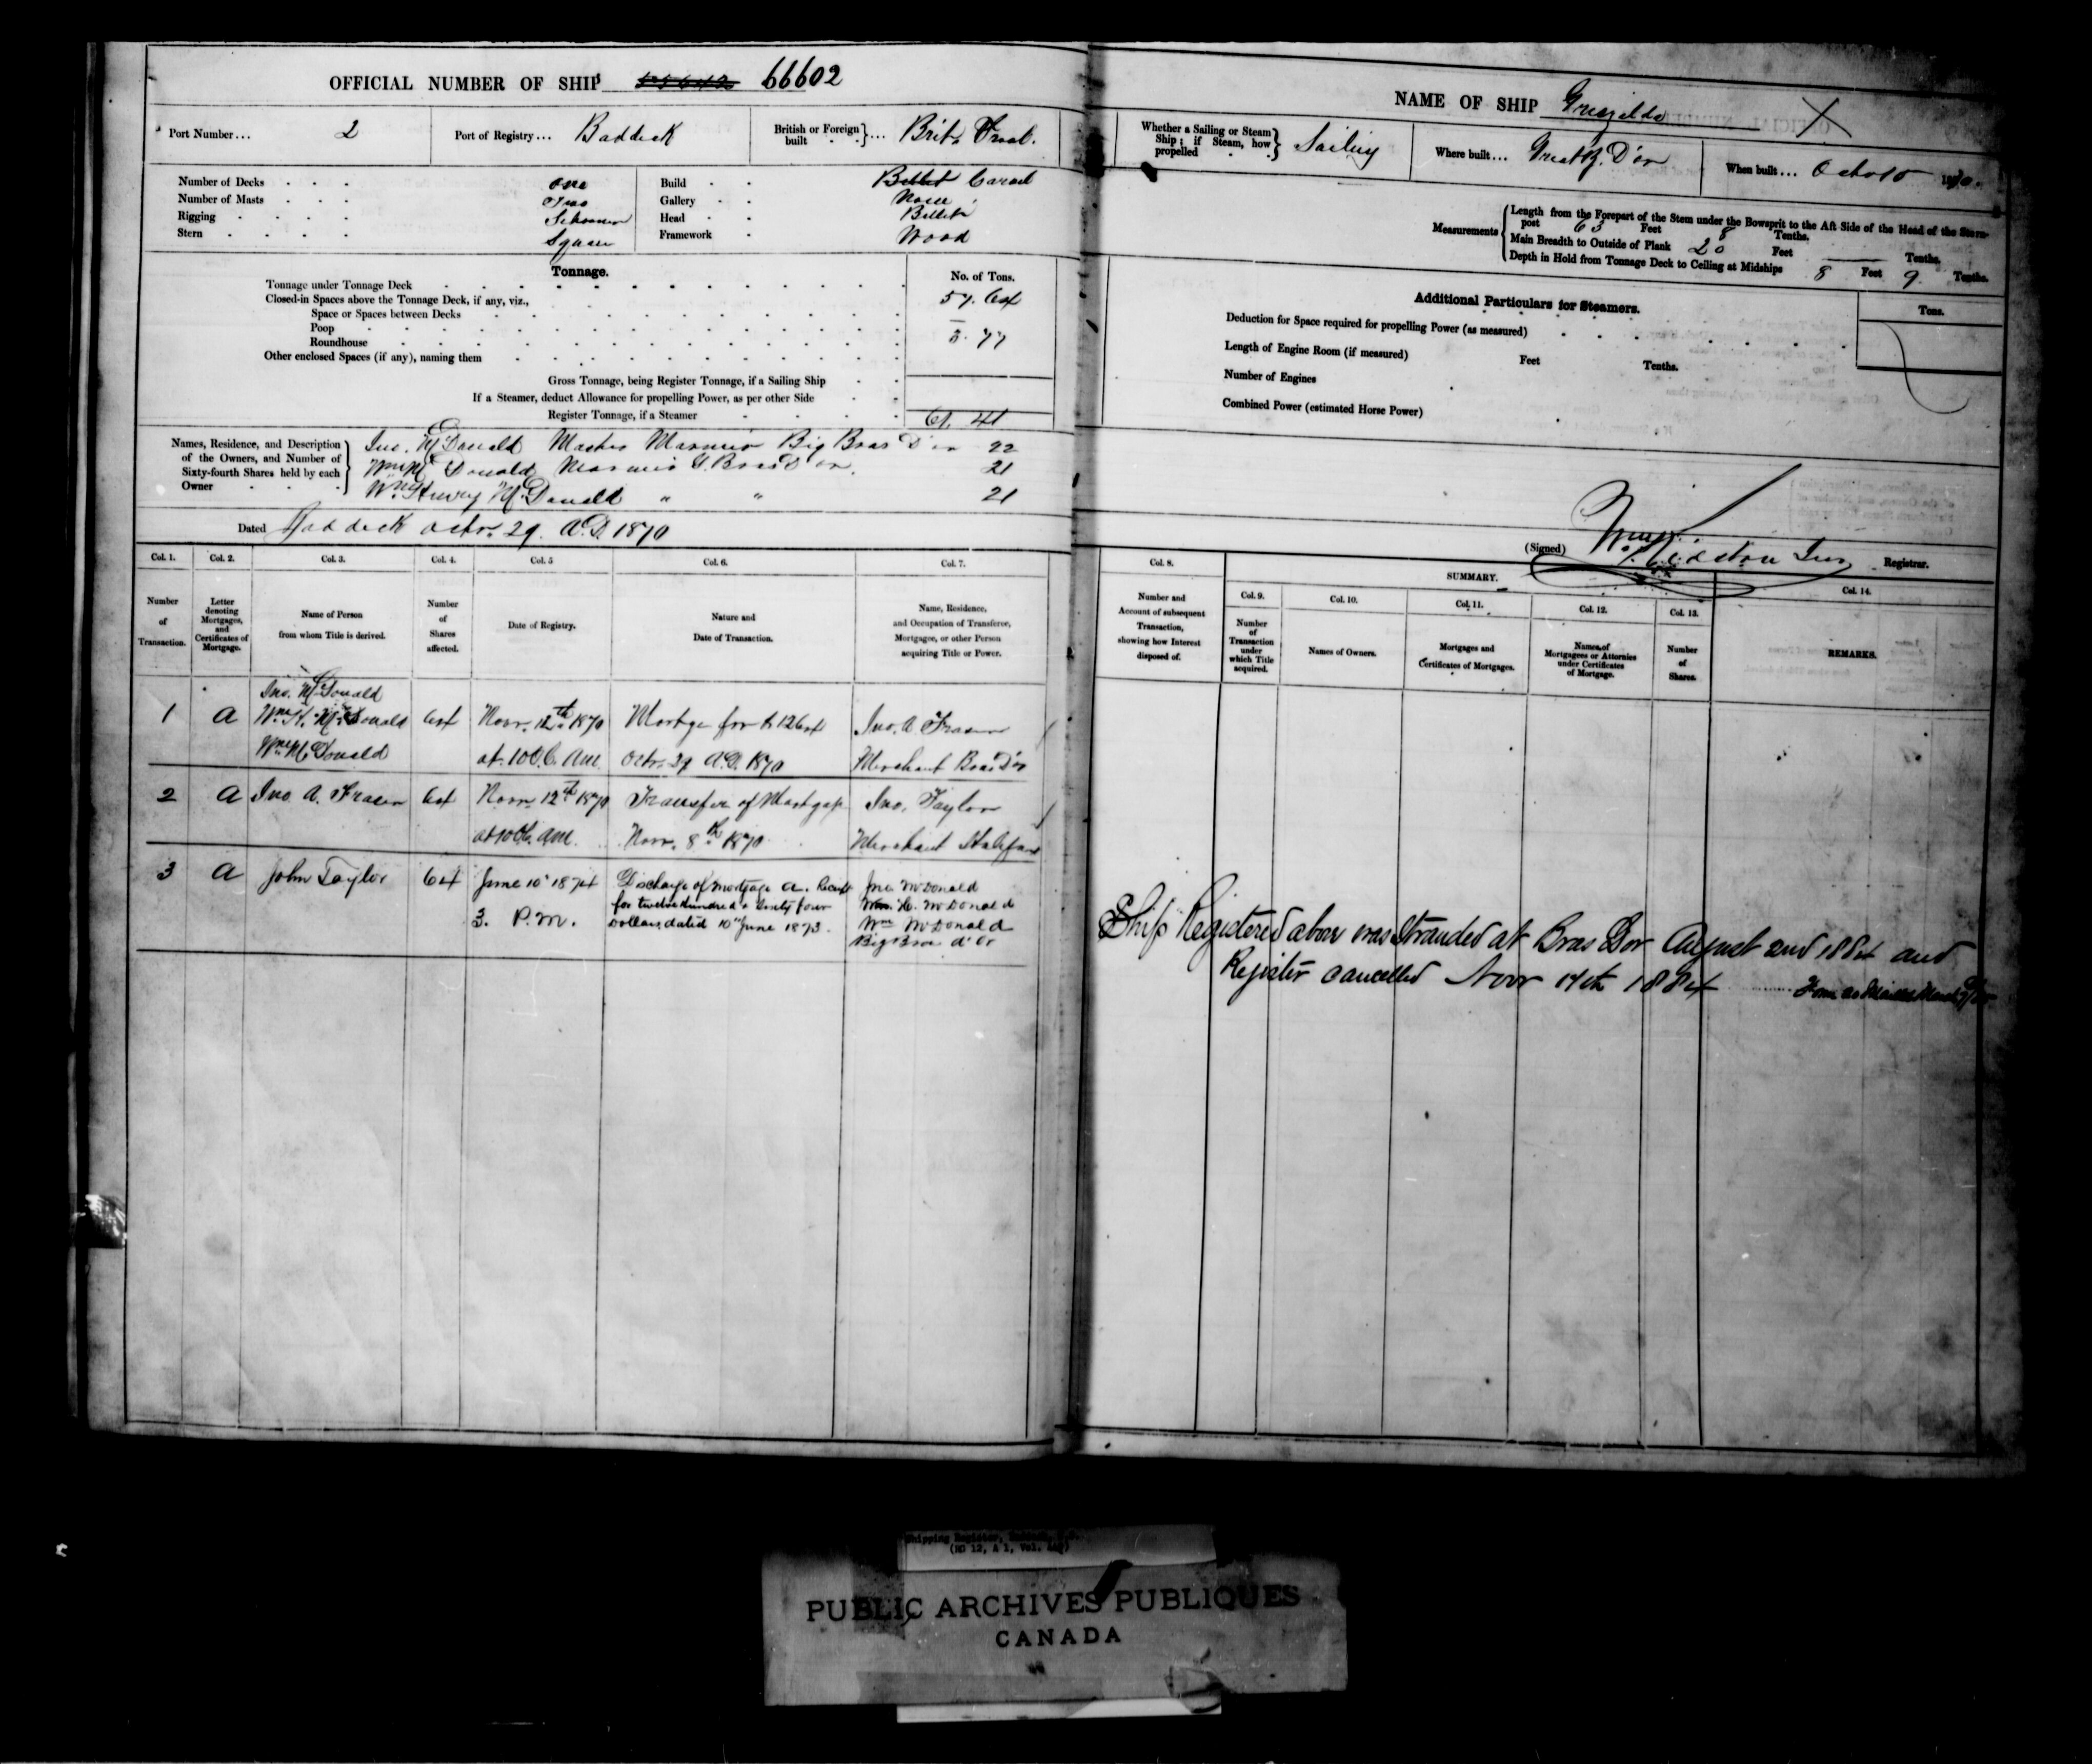 OFFICIAL NUMBER OF SHIP 66602
Port Number... 2 Port of Registry... Baddeck British or Foreign built } ... Brit
Number of Decks one
Number of Masts Two
Rigging Schooner
Stern Square
Build Billet Carvel
Gallery None
Head Billet
Framework Wood
Tonnage.
No. of Tons.
Tonnage under Tonnage Deck 57. 64
Closed-in Spaces above the Tonnage Deck, if any, viz.,
Space or Spaces between Decks
Poop
Roundhouse 3. 77
Other enclosed Spaces (if any), naming them
Gross Tonnage, being Register Tonnage, if a Sailing Ship
If a Steamer, deduct Allowance for propelling Power, as per other Side
Register Tonnage, if a Steamer 61. 41
Names, Residence, and Description of the Owners, and Number of Sixty-fourth Shares held by each Owner
Jno. McDonald Master Mariner Big Bras D'or 22
Wm McDonald Mariner G. Bras D'or. 21
Wm Henry McDonald " " 21
Dated Baddeck Octr. 29. A.D. 1870
Col. 1. Col. 2. Col. 3. Col. 4. Col. 5 Col. 6. Col. 7.
Number of Transaction.
Letter denoting Mortgages, and Certificates of Mortgage.
Name of Person from whom Title is derived.
Number of Shares affected.
Date of Registry.
Nature and Date of Transaction.
Name, Residence, and Occupation of Transferee, Mortgagee, or other Person acquiring Title or Power.
1 A Jno. McDonald
Wm H. McDonald
Wm McDonald
64
Novr. 12th 1870
at 10 O.C. AM.
Mortge for $1264
Octr. 29 A.D. 1870
Jno. A Fraser
Merchant Bras D'or
2 A Jno. A. Fraser 64
Novr 12th 1870
at 10 AM.
Transfer of Mortgage
Novr. 8th 1870
Jno. Taylor
Merchant Halifax
3 A John Taylor 64
June 10" 1874
3. P.M.
Discharge of Mortgage A. Receipt
for twelve hundred & Sixty four
Dollars, dated 10" June 1873.
Jno McDonald
Wm. H. McDonald
Wm McDonald
Big Bras d'Or
NAME OF SHIP Griezelda
Whether a Sailing or Steam Ship; if Steam, how propelled } Sailing Where built... Great B. D'or When built... Octr 15 1870.
Measurements
Length from the Forepart of the Stem under the Bowsprit to the Aft Side of the Head of the Stern-post 63 Feet 8 Tenths.
Main Breadth to Outside of Plank 20 Feet Tenths.
Depth in Hold from Tonnage Deck to Ceiling at Midships 8 Feet 9 Tenths.
Additional Particulars for Steamers.
Tons.
Deduction for Space required for propelling Power (as measured)
Length of Engine Room (if measured) Feet Tenths.
Number of Engines
Combined Power (estimated Horse Power)
(Signed) Registrar.
Col. 8. SUMMARY. Col. 14.
Col. 9. Col. 10. Col. 11. Col. 12. Col. 13.
Number and Account of subsequent Transaction, showing how Interest disposed of.
Number of Transaction under which Title acquired.
Names of Owners.
Mortgages and Certificates of Mortgages.
Names of Mortgagees or Attornies under Certificates of Mortgage.
Number of Shares.
REMARKS.
Ship Registered above was Stranded at Bras Dor August 2nd 1884 and
Register cancelled Novr 17th 1884
Shipping Register,
(RG 12, A 1, Vol.
PUBLIC ARCHIVES PUBLIQUES
CANADA